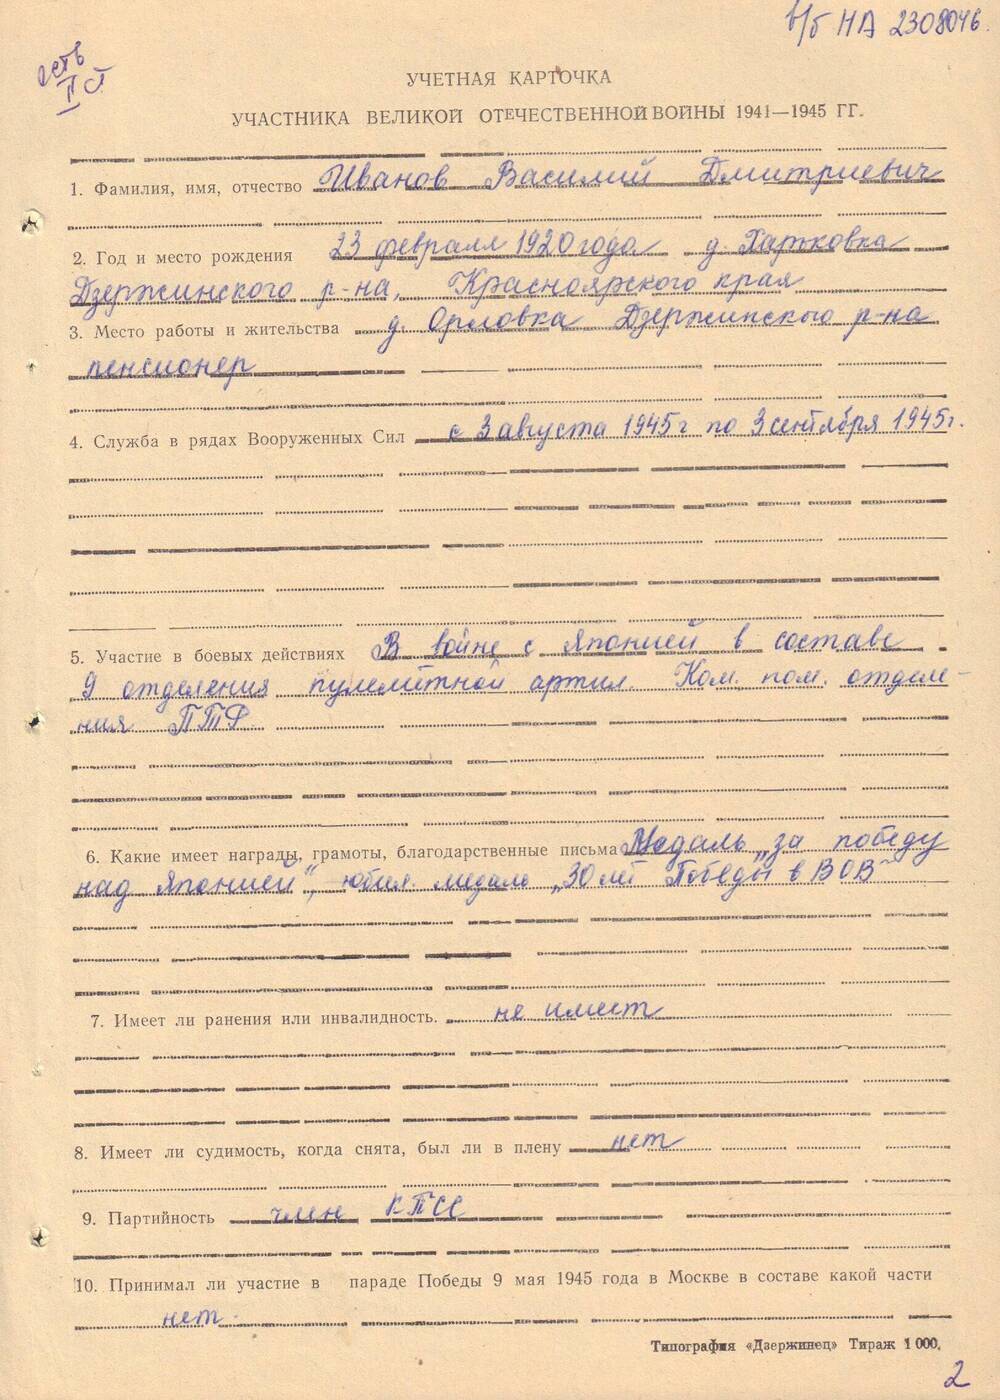 в/б НА 2308046.
есть
УЧЕТНАЯ КАРТОЧКА
УЧАСТНИКА ВЕЛИКОЙ ОТЕЧЕСТВЕННОЙ ВОЙНЫ 1941—1945 ГГ.
1. Фамилия, имя, отчество Иванов Василий Дмитриевич
2. Год и место рождения 23 февраля 1920 года д. Харьковка
Дзержинского р-на, Красноярского края
3. Место работы и жительства д. Орловка Дзержинского р-на
пенсионер
4. Служба в рядах Вооруженных Сил с 3 августа 1945 г по 3 сентября 1945 г.
5. Участие в боевых действиях В войне с Японией в составе
9 отделения пулемётной артил. Ком. пом. отделе-
ния ПТР
6. Какие имеет награды, грамоты, благодарственные письма Медаль „за победу
над Японией", юбил. медаль „30 лет Победы в ВОВ"
7. Имеет ли ранения или инвалидность. не имеет
8. Имеет ли судимость, когда снята, был ли в плену нет
9. Партийность член КПСС
10. Принимал ли участие в параде Победы 9 мая 1945 года в Москве в составе какой части
нет.
Типография «Дзержинец» Тираж 1 000.
2